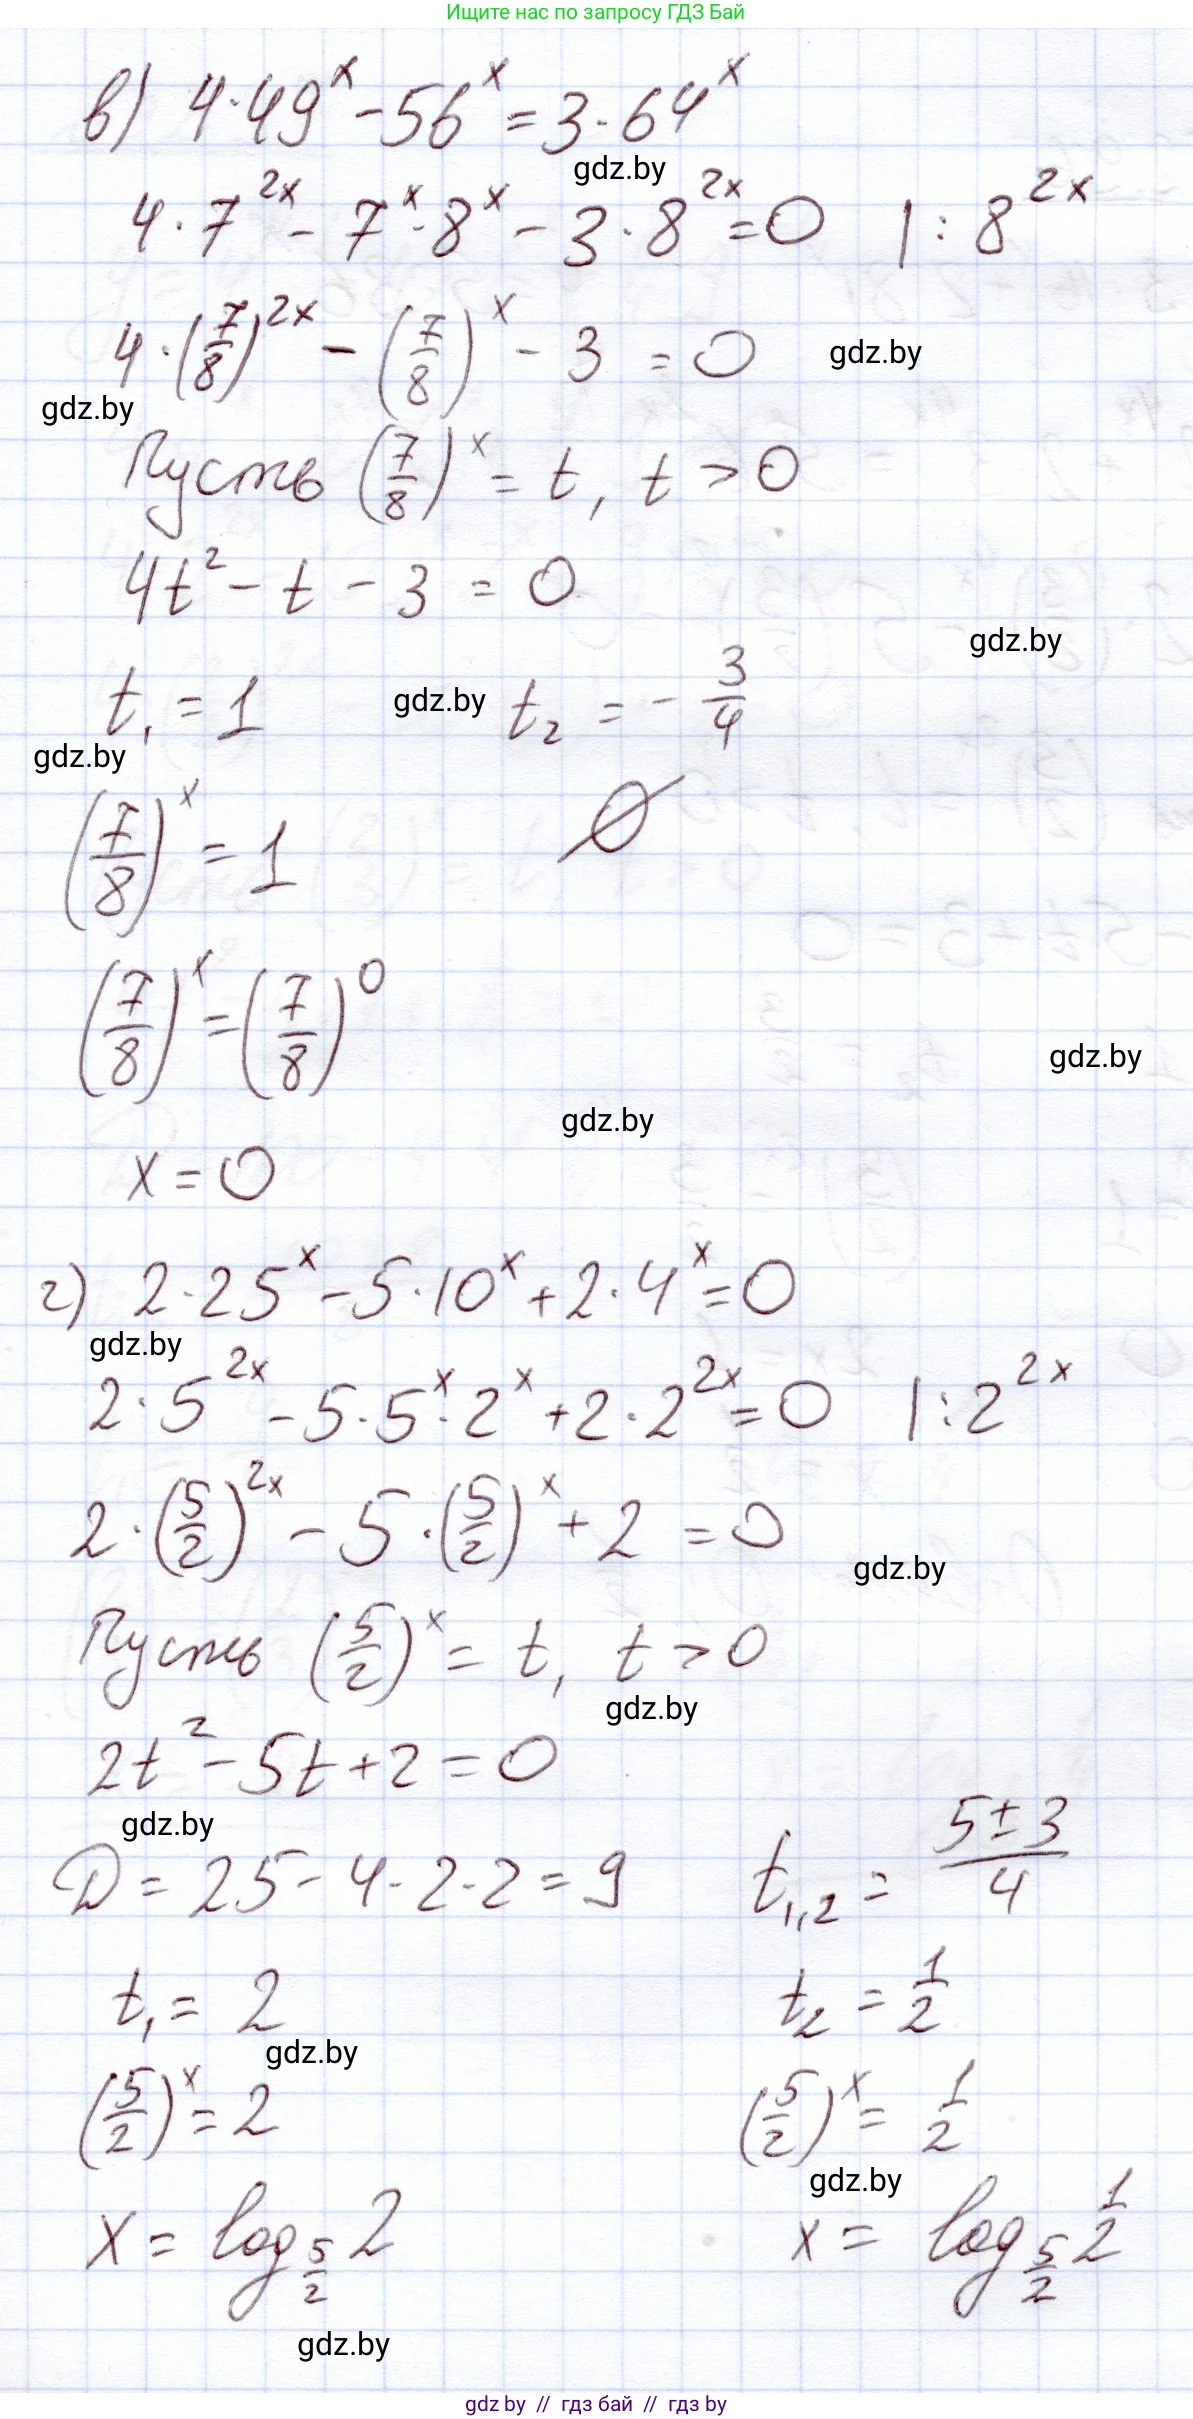 Ищите нас по запросу ГДЗ Бай
в) 4·49^x - 56^x = 3·64^x
gdz.by
4·7^{2x} - 7^x·8^x - 3·8^{2x} = 0 |: 8^{2x}
4·(7/8)^{2x} - (7/8)^x - 3 = 0 gdz.by
gdz.by
Пусть (7/8)^x = t, t > 0
4t² - t - 3 = 0
gdz.by
t₁ = 1 gdz.by t₂ = - 3/4
gdz.by
(7/8)^x = 1 ∅
(7/8)^x = (7/8)^0
gdz.by
gdz.by
x = 0
г) 2·25^x - 5·10^x + 2·4^x = 0
gdz.by
2·5^{2x} - 5·5^x·2^x + 2·2^{2x} = 0 |: 2^{2x}
2·(5/2)^{2x} - 5·(5/2)^x + 2 = 0
gdz.by
Пусть (5/2)^x = t, t > 0
gdz.by
2t² - 5t + 2 = 0
gdz.by
D = 25 - 4·2·2 = 9 t₁,₂ = (5 ± 3)/4
t₁ = 2 t₂ = 1/2
gdz.by
(5/2)^x = 2 (5/2)^x = 1/2
gdz.by
x = log_{5/2} 2 x = log_{5/2} 1/2
gdz.by
gdz by // гдз бай // гдз by